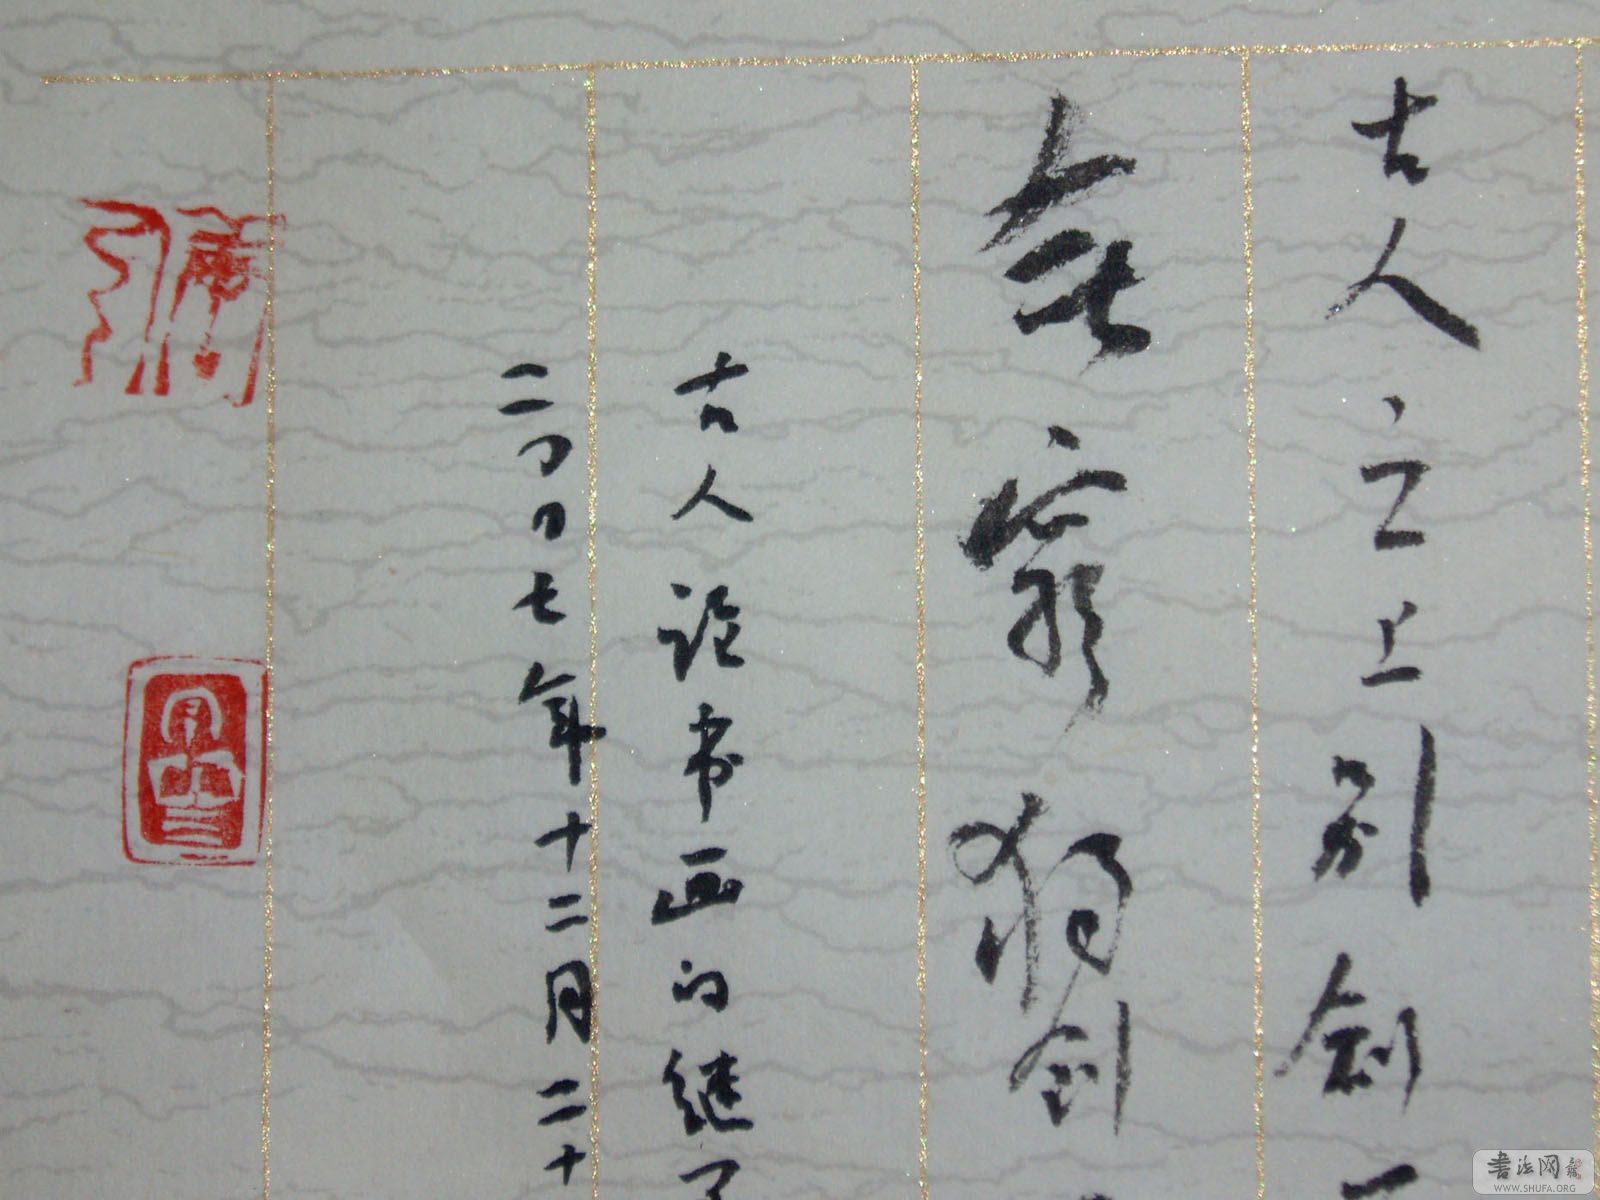 古人之上别创一
无穷独创
古人论书画的继了
二〇〇七年十二月二十
书法网
WWW.SHUFA.ORG